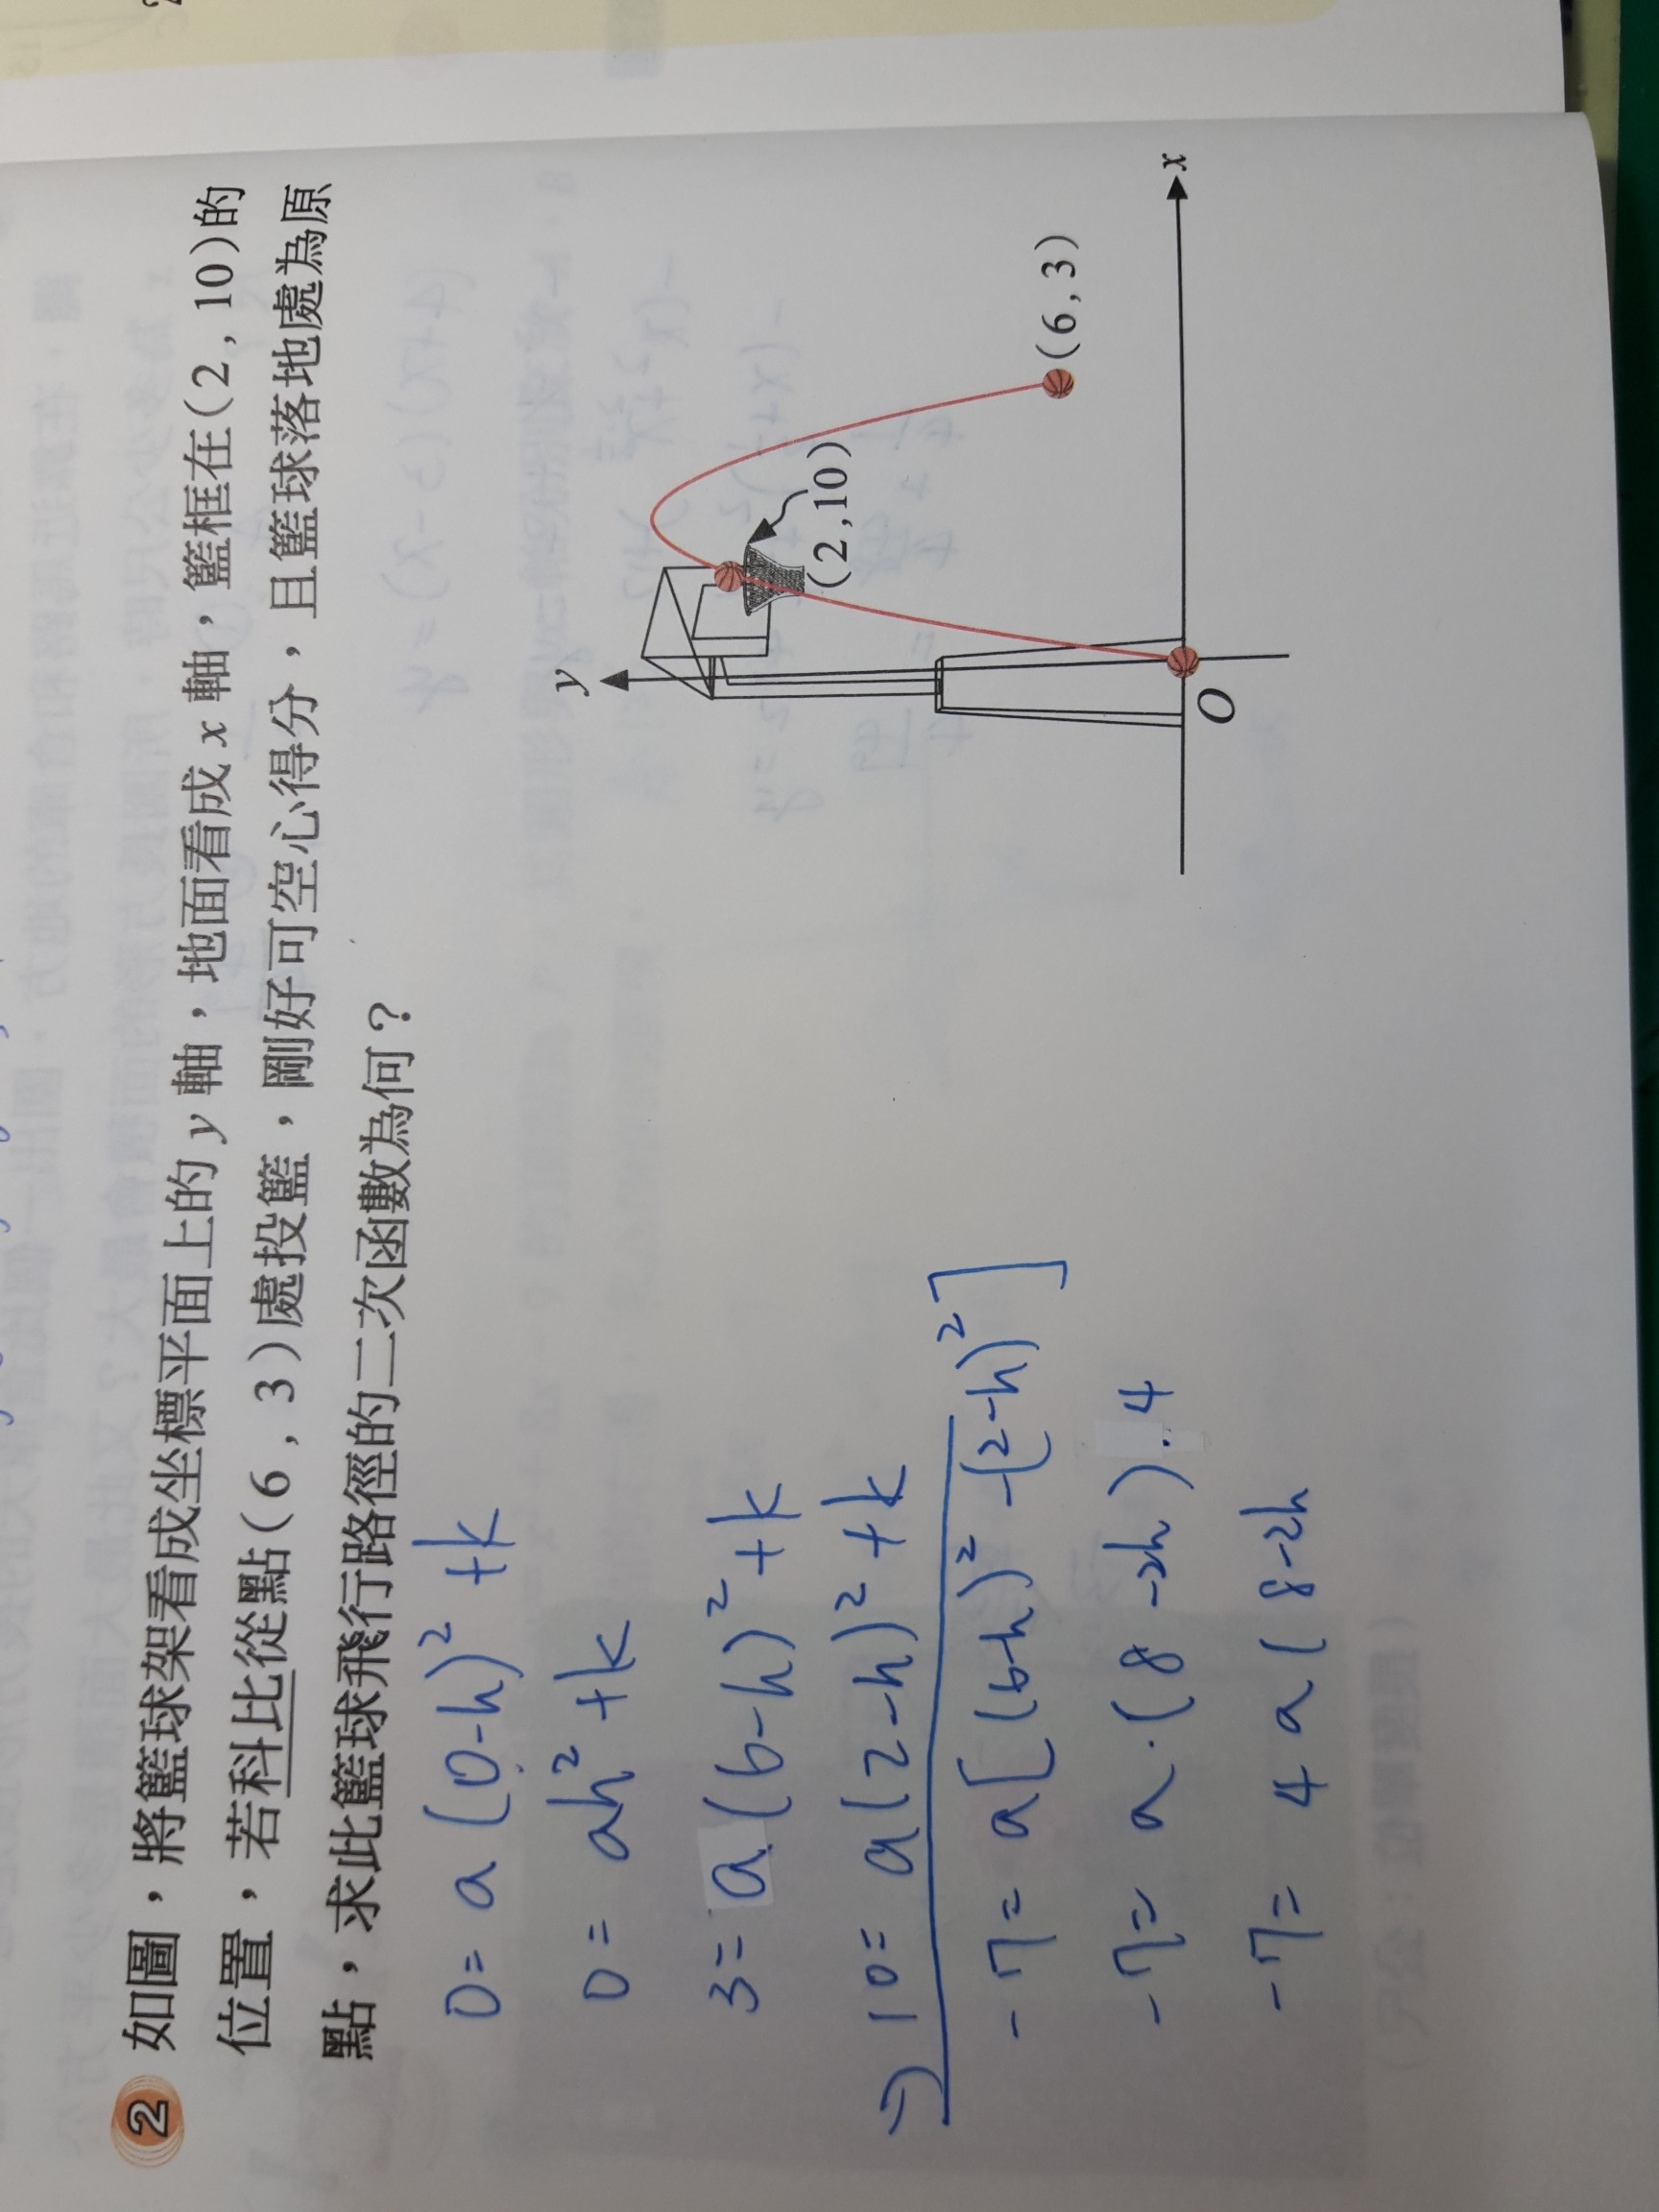 2 如圖，將籃球架看成坐標平面上的 y 軸，地面看成 x 軸，籃框在(2 , 10)的
位置，若科比從點(6 , 3)處投籃，剛好可空心得分，且籃球落地處為原
點，求此籃球飛行路徑的二次函數為何？
0 = a (0-h)² + k
0 = ah² + k
3 = a (6-h)² + k
-) 10 = a (2-h)² + k
-7 = a[(6-h)² - (2-h)²]
-7 = a · (8 - 2h) · 4
-7 = 4 a ( 8 - 2h
y
(2 , 10)
(6 , 3)
O
x